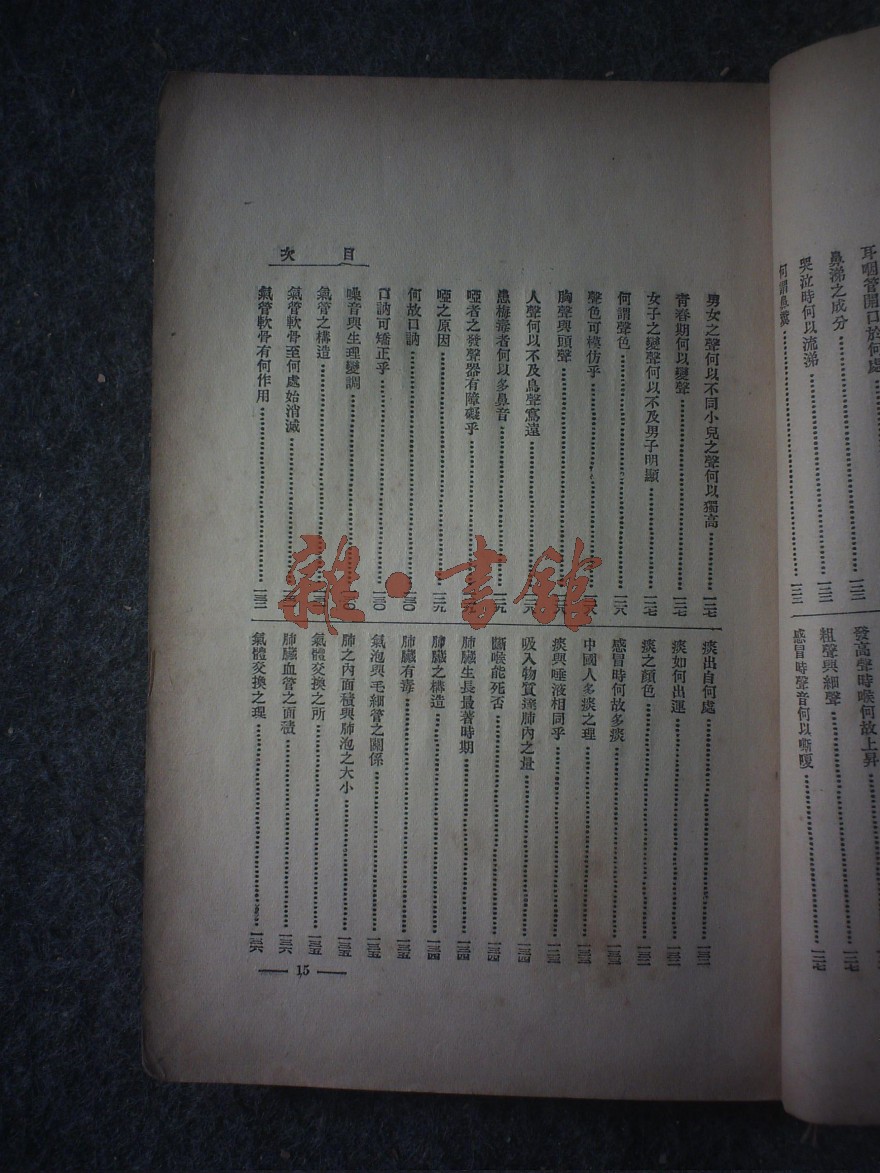 耳咽管開口於何處
鼻涕之成分
哭泣時何以流涕
何謂鼻糞
發高聲時喉何故上昇
粗聲與細聲
感冒時聲音何以嘶嗄
目次
男女之聲何以不同小兒之聲何以獨高……一二七
青春期何以變聲……一二七
女子之變聲何以不及男子明顯……一二七
何謂聲色……一二八
聲色可模仿乎……一二八
胸聲與頭聲……一二八
人聲何以不及鳥聲寫遠……一二八
患梅毒者何以多鼻音……一二九
啞者之發聲器有障礙乎……一二九
啞之原因……一二九
何故口訥……一三〇
口訥可矯正乎……一三〇
噪音與生理變調
氣管之構造
氣管軟骨至何處始消滅
氣管軟骨有何作用
痰出自何處
痰如何出運
痰之顏色
感冒時何故多痰
中國人多痰之理
痰與唾液相同乎
吸入物質達肺內之量……一三四
斷喉能死否……一三四
肺臟生長最著時期……一三四
肺臟之構造……一三四
肺臟有毒……一三五
氣泡與毛細管之關係……一三五
肺之內面積與肺泡之大小……一三五
氣體交換之所……一三五
肺臟血管之面積……一三六
氣體交換之理……一三六
— 15 —
雜·書館